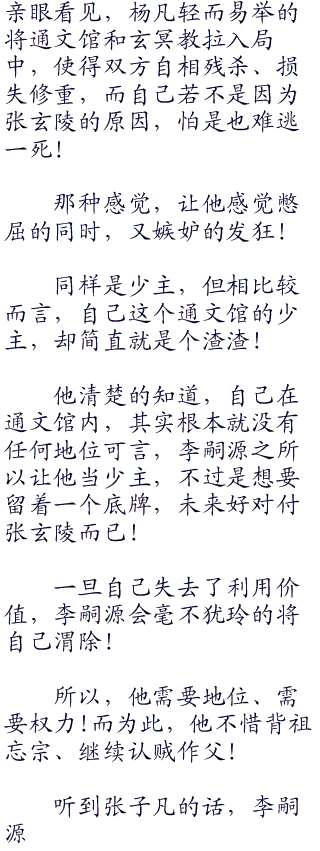 亲眼看见，杨凡轻而易举的
将通文馆和玄冥教拉入局
中，使得双方自相残杀、损
失修重，而自己若不是因为
张玄陵的原因，怕是也难逃
一死！
那种感觉，让他感觉憋
屈的同时，又嫉妒的发狂！
同样是少主，但相比较
而言，自己这个通文馆的少
主，却简直就是个渣渣！
他清楚的知道，自己在
通文馆内，其实根本就没有
任何地位可言，李嗣源之所
以让他当少主，不过是想要
留着一个底牌，未来好对付
张玄陵而已！
一旦自己失去了利用价
值，李嗣源会毫不犹玲的将
自己渭除！
所以，他需要地位、需
要权力！而为此，他不惜背祖
忘宗、继续认贼作父！
听到张子凡的话，李嗣
源